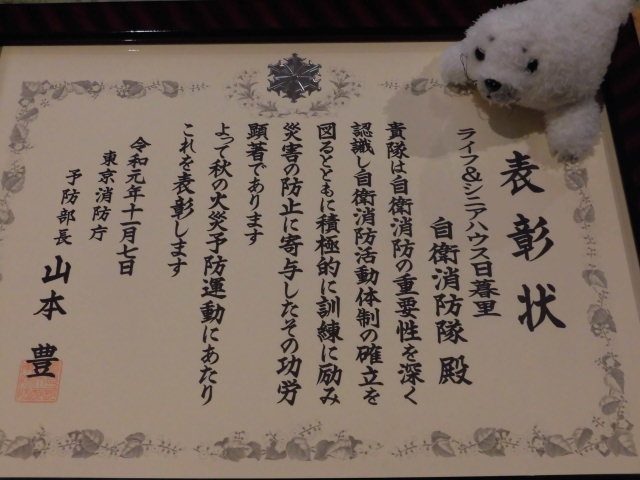 表彰状
ライフ&シニアハウス日暮里
自衛消防隊 殿
貴隊は自衛消防の重要性を深く
認識し自衛消防活動体制の確立を
図るとともに積極的に訓練に励み
災害の防止に寄与したその功労
顕著であります
よって秋の火災予防運動にあたり
これを表彰します
令和元年十一月七日
東京消防庁
予防部長 山本 豊